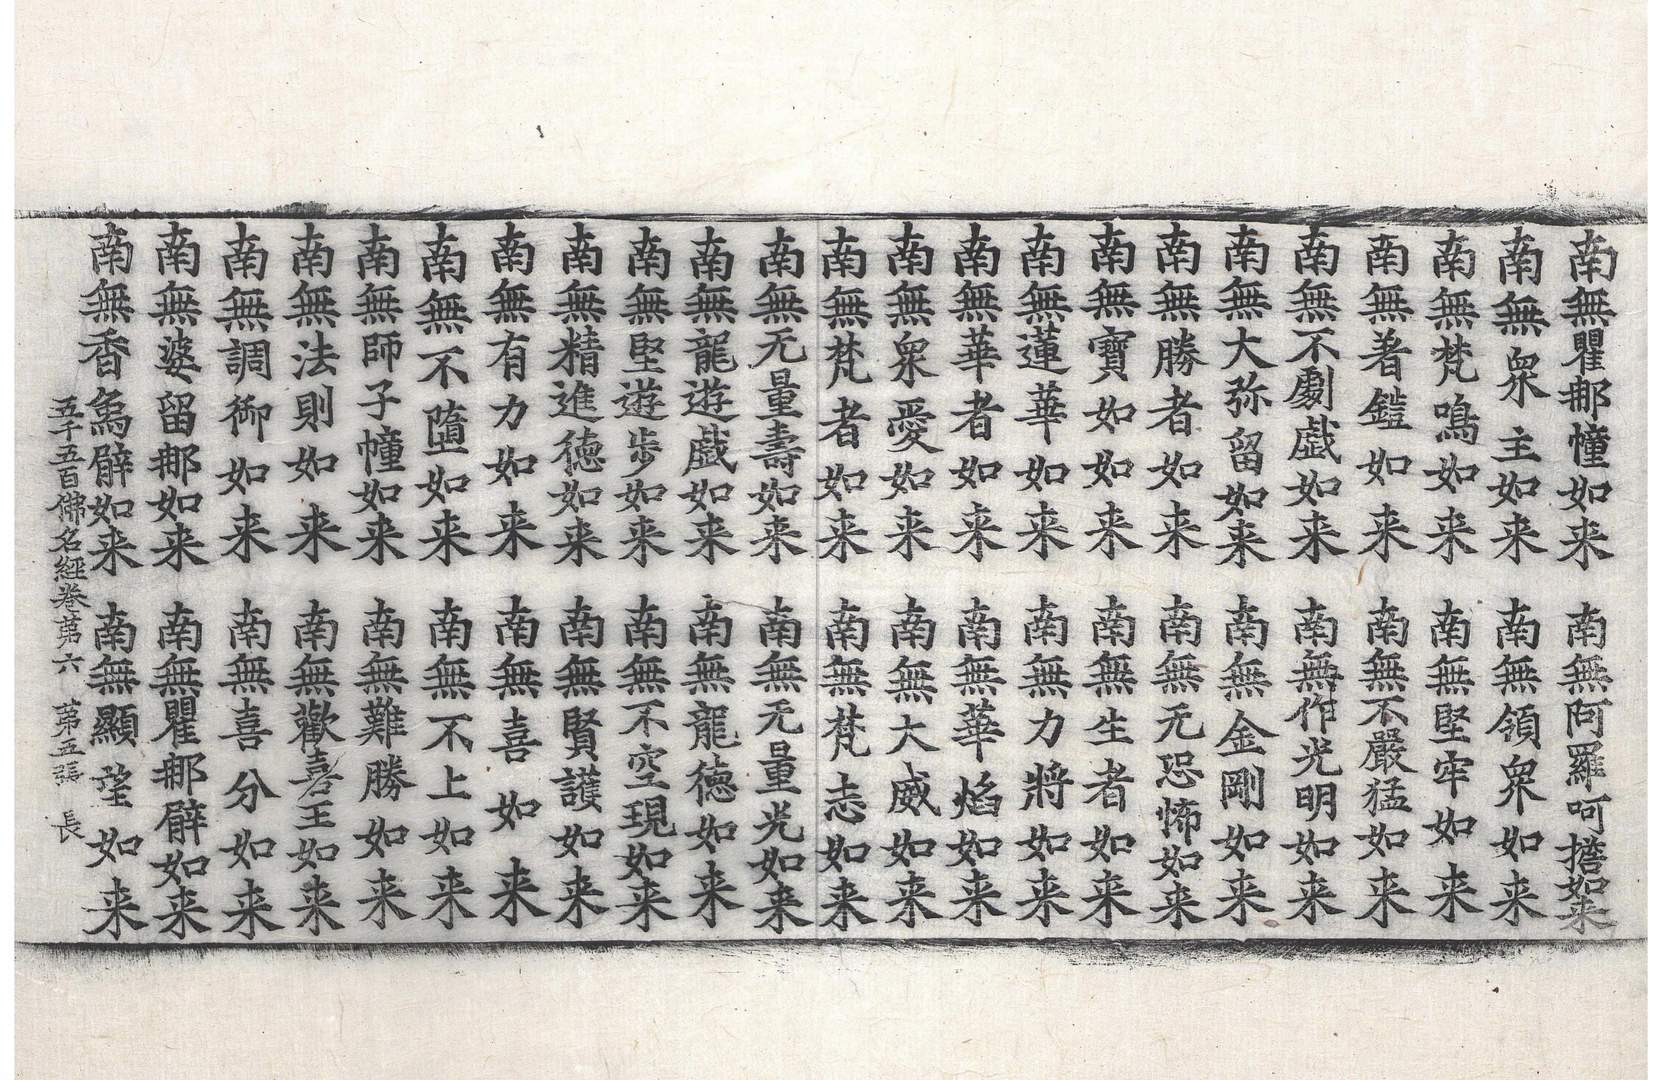 南無瞿那幢如来 南無阿羅呵擔如来
南無衆主如来 南無領衆如来
南無梵鳴如来 南無堅牢如来
南無著鎧如来 南無不嚴猛如来
南無不劇戯如来 南無作光明如来
南無大弥留如来 南無金剛如来
南無勝者如来 南無无恐怖如来
南無寶如如来 南無生者如来
南無蓮華如来 南無力將如来
南無華者如来 南無華焰如来
南無衆愛如来 南無大威如来
南無梵者如来 南無梵志如来
南無无量壽如来 南無无量光如来
南無龍遊戯如来 南無龍德如来
南無堅遊步如来 南無不空現如来
南無精進德如来 南無賢護如来
南無有力如来 南無喜如来
南無不墮如来 南無不上如来
南無師子幢如来 南無難勝如来
南無法則如来 南無歡喜王如来
南無調御如来 南無喜分如来
南無婆留那如来 南無瞿那臂如来
南無香象臂如来 南無顯望如来
五千五百佛名經卷第六 第五張 長